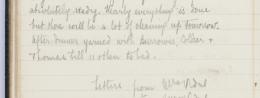 absolutely ready. Nearly everything is done
but there will be a lot of cleaning up tomorrow.
After dinner yarned with Burrows, Collier &
Thomas till 11 then to bed.
Letters from